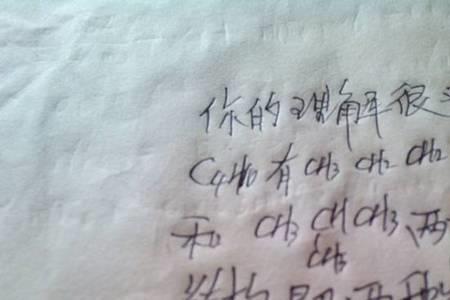 你的理解很
C4H10有CH3 CH2 CH2
和 CH3 CH CH3、两
CH3
结构是两种